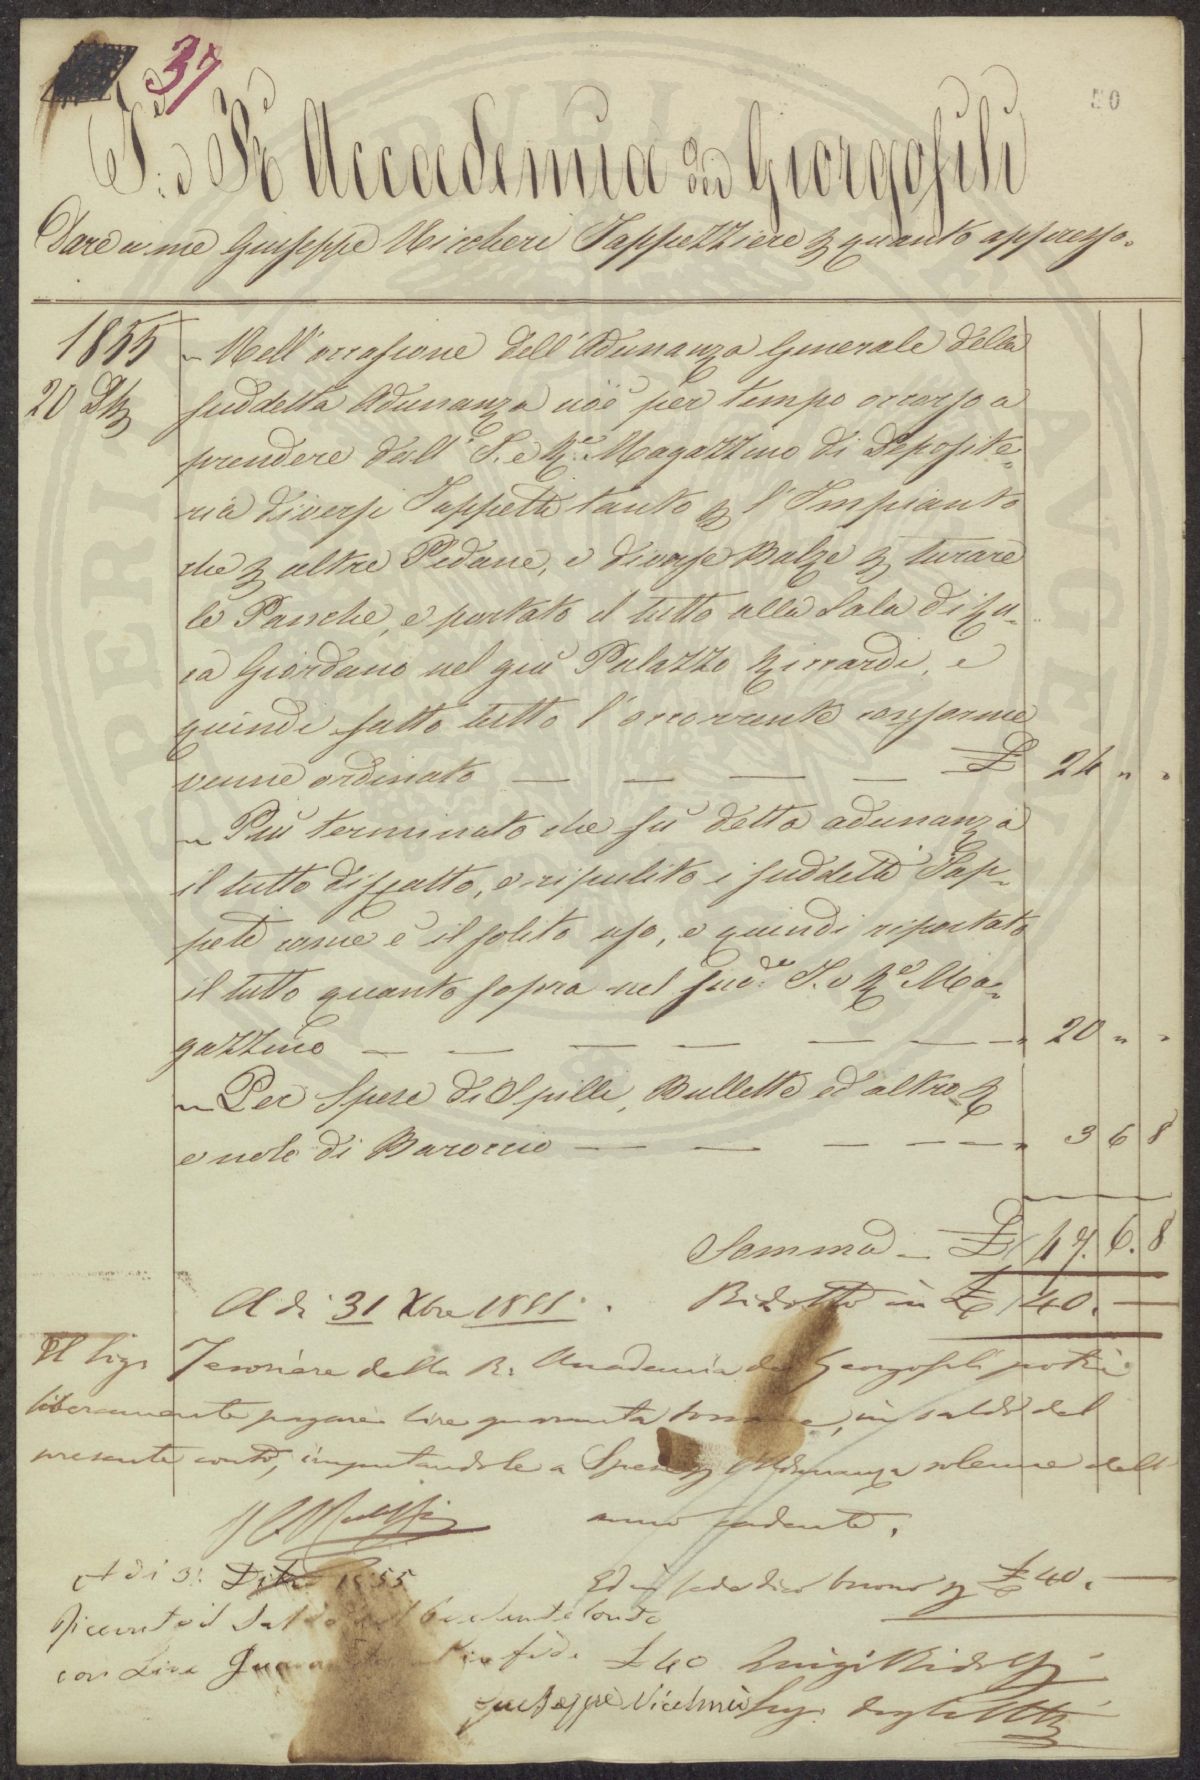 37
50
I. e Rle Accademia dei Giorgofili
Dare a me Giuseppe Vircheri Tappezziere p quanto appresso.
1855
20 Xbre
„ Nell'occasione dell'Adunanza Generale della
suddetta Adunanza cioè per tempo occorso a
prendere dall' I. e R.e Magazzino di Deposite=
ria diversi Tappeti tanto p l'Impianto
che p altre Pedane, e diverse Balze p turare
le Panche, e portato il tutto alla Sala di Lu=
ca Giordano nel già Palazzo Riccardi, e
quindi fatto tutto l'occorrente conforme
venne ordinato — — — — — £ 24 „ „
„ Più terminato che fu detta adunanza
il tutto disfatto, e ripulito i suddetti Tap=
peti come è il solito uso, e quindi riportato
il tutto quanto sopra nel sud.o I. e R.e Ma=
gazzino — — — — — — „ 20 „ „
„ Per Spese di Spilli, Bullette ed altro p
e nolo di Baroccio — — — — — „ 3 6 8
Somma — £ 47. 6. 8
Ridotto in £ 40. —
A dì 31 Xbre 1855.
Il Sigr Tesoriere della R. Accademia dei Georgofili potrà
liberamente pagare lire quaranta in saldo del
presente conto, imputandole a Spese p l'Adunanza solenne dell'
anno cadente.
Ed in fede dico buono p £ 40. —
A dì 31 Dbre 1855
Ricevuto il Saldo del Presente Conto
con Lire Quaranta in fede £ 40
Luigi Ridolfi
Giuseppe
Seg. degli Atti